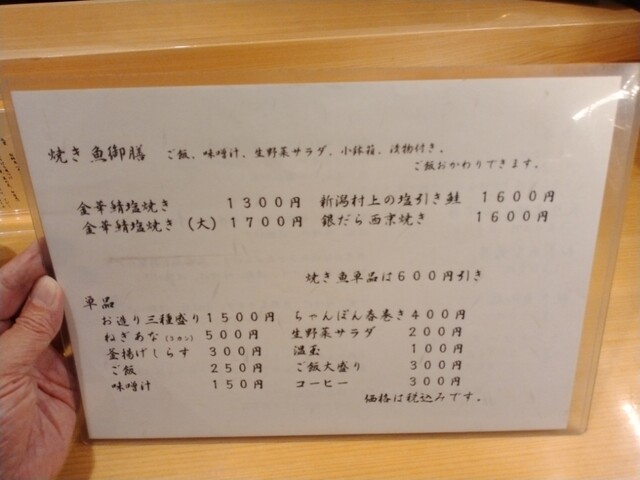 焼き魚御膳　ご飯、味噌汁、生野菜サラダ、小鉢箱、漬物付き。
ご飯おかわりできます。
金華鯖塩焼き　1300円　新潟村上の塩引き鮭　1600円
金華鯖塩焼き（大）　1700円　銀だら西京焼き　1600円
焼き魚単品は600円引き
単品
お造り三種盛り　1500円　ちゃんぽん春巻き　400円
ねぎあな　500円　生野菜サラダ　200円
釜揚げしらす　300円　温玉　100円
ご飯　250円　ご飯大盛り　300円
味噌汁　150円　コーヒー　300円
価格は税込みです。